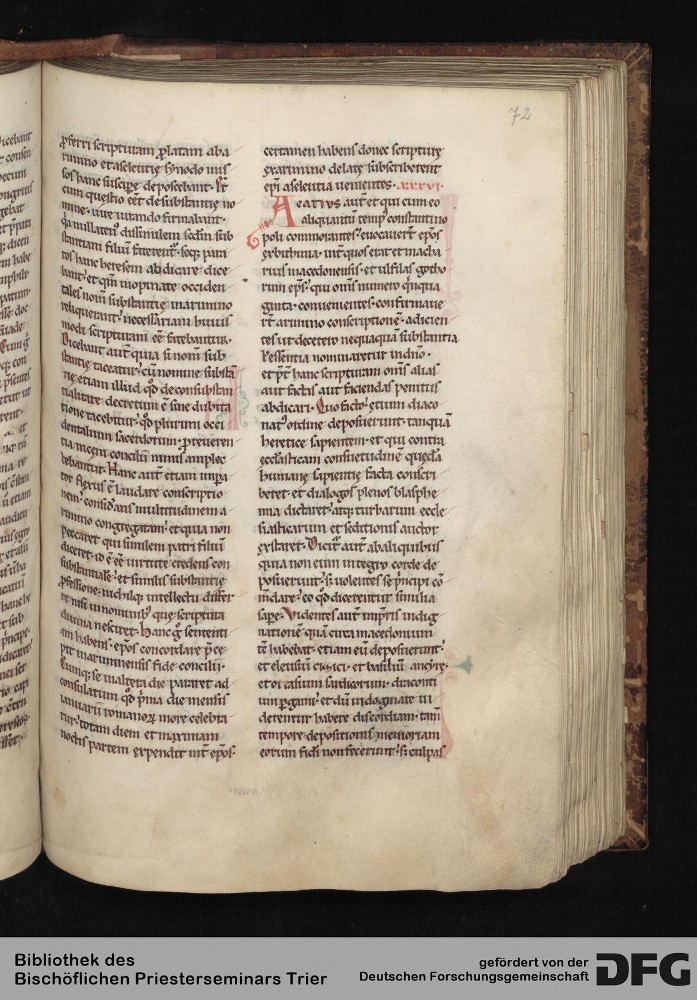 72
ꝓferri scripturam ꝓlatam aba
rimino et aseleutię sẏnodo mis
sos hanc suscipe deposcebant.
cum questio eet de substantię no
mine iure iurando firmabant
qa nullaten dissimilem scdm sub
stantiam filiu faterent. seq para
tos hanc heresem abdicare dice
bant et qm inopinate occiden
tales nom substantie in arimino
reliquerant. necessariam huius
modi scripturam ee fatebantur.
Dicebant aut quia si nom sub
stantię taceatur. cu nomine substa
tię etiam illud qd de consubstan
tialitate decretum e sine dubita
tione tacebitur. qd plurimi occi
dentalium sacerdotum
tia niceni concilii nimis amplec
tebantur. Hanc aut etiam impa
tor fixus e laudare conscriptio
nem. considans multitudinem a
rimino congregatam et quia non
peccaret qui similem patri filiu
diceret id e ee virtute credens con
substantiale. et similis substantię
ꝓfessione. nichilq intellectu differ
re nisi in nominib que scriptura
diuina nesciret. Hanc g sententi
am habens. epos concordare pce
pit in ariminensis fide concilii.
Cumq se in altera die pararet ad
consulatum qd pma die mensis
ianuarii romanor more celebra
tur. totam diem et maximam
noctis partem expendit int epos.
certamen habens donec scripturę
ex arimino delatę subscriberent
epi aseleutia uenientes. xxxvi.
Acatius aut et qui cum eo
aliquantu temp constantino
poli commorantes. euocauert epos
ex bithinia. int quos erat et macha
rius macedonensis. et ulfilas gotho
rum eps. qui oms numero qnqua
ginta conuenientes confirmaue
rt arimino conscriptione. adicien
tes ut de cetero nequaquā substantia
l essentia nominaretur in dno.
et pt hanc scripturam oms alias
aut factas aut faciendas penitus
abdicari. Quo facto etium diaco
nat ordine deposuerunt. tanquā
heretice sapientem. et qui contra
ecclasticam consuetudine quedā
humanę sapientię facta conscri
beret. et dialogos plenos blasphe
mia dictaret. atq turbarum eccle
siasticarum et seditionis auctor
existeret. Dicit aut ab aliquibus
quia non eum integro corde de
posuerunt. s uolentes se pncipi cō
mdare. eo qd diceretur similia
sape. Videntes aut impris indig
natione quā circa macedonium
tē habebat. etiam eū deposuerunt.
et eleusiu cizici. et basiliu ancyre.
et oi casium sardicorum. draconti
um pgami. et dū in dogmate ui
derentur habere discordiam. tam
tempore depositionis memoriam
eorum fidei non fecerunt. s culpas
Bibliothek des
Bischöflichen Priesterseminars Trier
gefördert von der
Deutschen Forschungsgemeinschaft
DFG